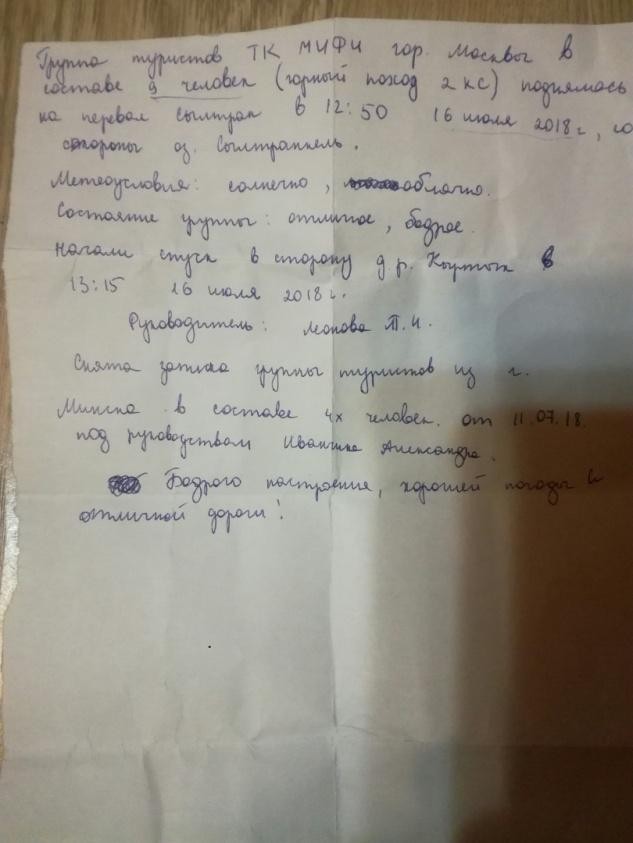 Группа туристов ТК МИФИ гор. Москвы в
составе 9 человек (горный поход 2 КС) поднялась
на перевал Сылтран в 12:50 16 июля 2018 г, со
стороны оз. Сылтранкель.
Метеоусловия: солнечно, облачно.
Состояние группы: отличное, бодрое.
Начали спуск в сторону д.р. Кыртык в
13:15 16 июля 2018 г.
Руководитель: Т.И.
Снята записка группы туристов из г.
Минска в составе 4х человек от 11.07.18.
под руководством Александра.
Бодрого настроения, хорошей погоды и
отличной дороги!